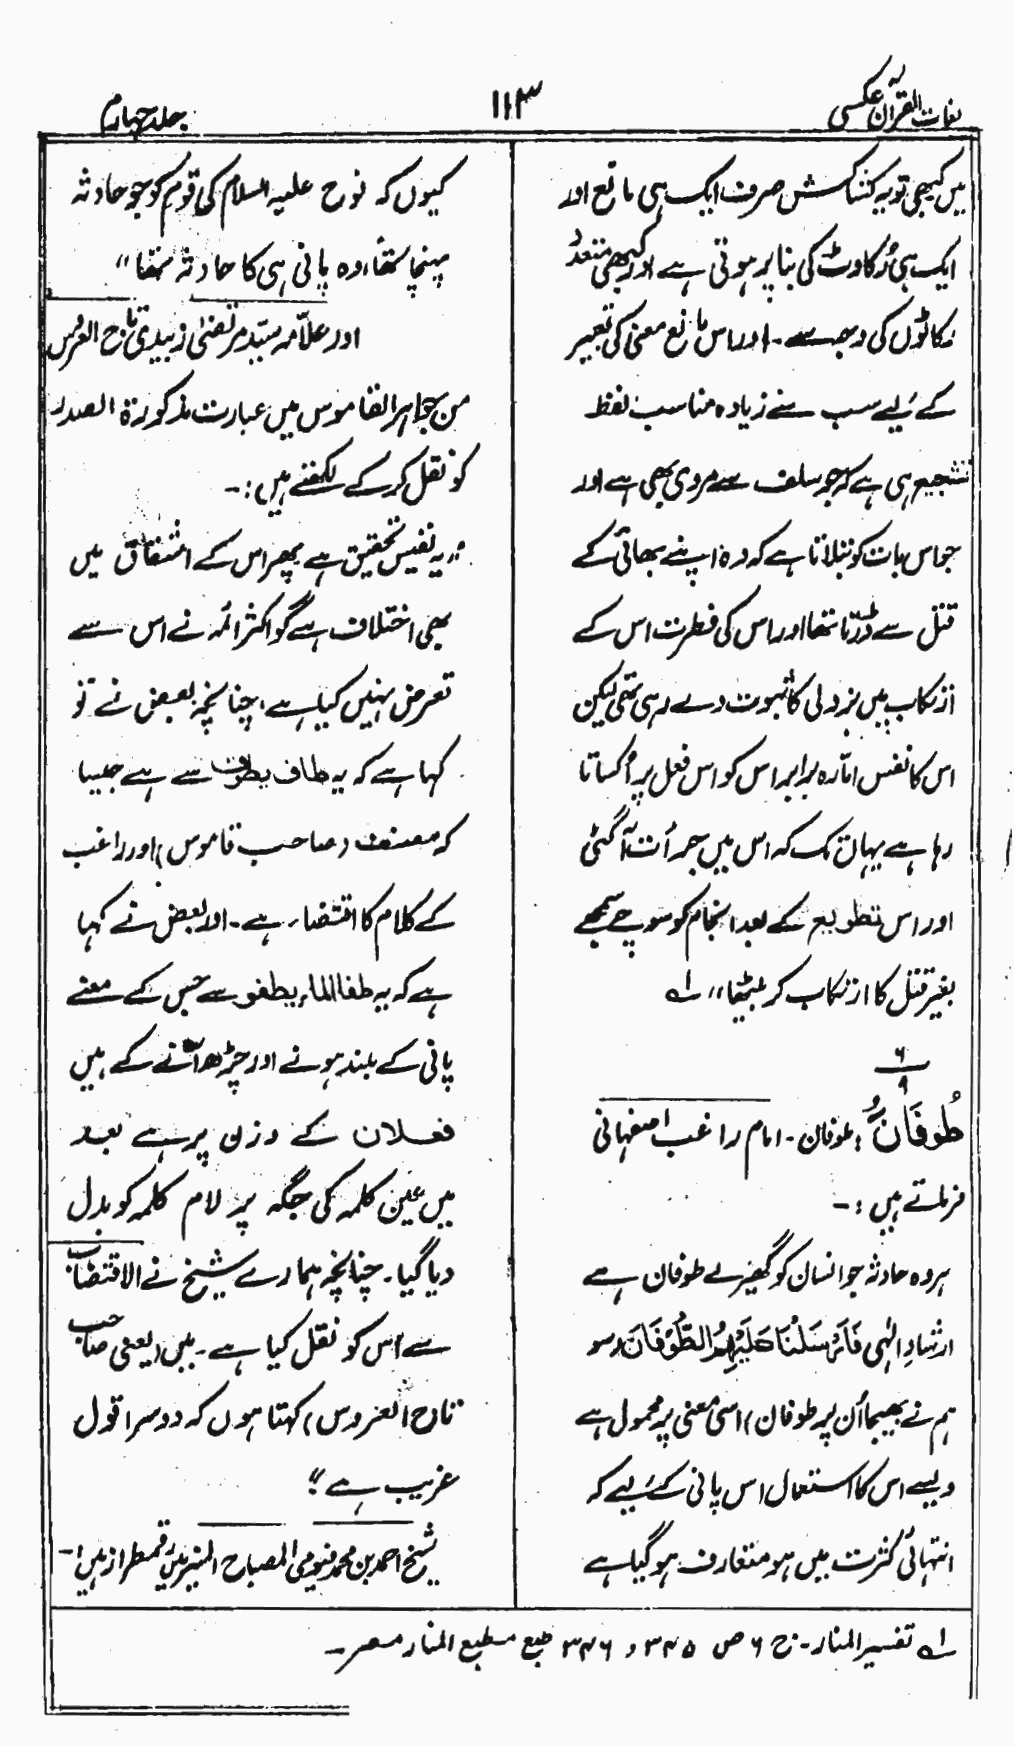 لغات القرآن عکسی
۱۱۳
جلد چہارم
میں کبھی تو یہ کشاکش صرف ایک ہی مانع اور
ایک ہی رُکاوٹ کی بنا پر ہوتی ہے اور کبھی متعدد
رکاٹوں کی وجہ سے۔ اور اس مانع معنی کی تعبیر
کے لیے سب سے زیادہ مناسب لفظ
تشجیع ہی ہے کہ جو سلف سے مروی بھی ہے اور
جو اس بات کو بتلاتا ہے کہ وہ اپنے بھائی کے
قتل سے ڈرتا تھا اور اس کی فطرت اس کے
ارتکاب میں بزدلی کا ثبوت دے رہی تھی لیکن
اس کا نفس امّارہ برابر اس کو اس فعل پر اُکساتا
رہا ہے یہاں تک کہ اس میں جرأت آگئی
اور اس تطویع کے بعد انجام کو سوچے سمجھے
بغیر قتل کا ارتکاب کر بیٹھا" لے
۶
۹
طُوفَانٌ؛ طوفان۔ امام راغب اصفہانی
فرماتے ہیں :۔
ہر وہ حادثہ جو انسان کو گھیر لے طوفان ہے
ارشادِ الٰہی فَاَرْسَلْنَا عَلَيْهِمُ الطُّوْفَانَ (سو
ہم نے بھیجا اُن پر طوفان) اسی معنی پر محمول ہے
ویسے اس کا استعمال اس پانی کے لیے کہ
انتہائی کثرت میں ہو متعارف ہو گیا ہے
کیوں کہ نوح علیہ السلام کی قوم کو جو حادثہ
پہنچا تھا، وہ پانی ہی کا حادثہ تھا"
اور علّامہ سیّد مرتضیٰ زبیدی تاج العروس
من جواہر القاموس میں عبارت مذکورۃ الصدر
کو نقل کر کے لکھتے ہیں :۔
"یہ نفیس تحقیق ہے پھر اس کے اشتقاق میں
بھی اختلاف ہے گو اکثر ائمہ نے اس سے
تعرض نہیں کیا ہے، چنانچہ بعض نے تو
کہا ہے کہ یہ طاف یطوف سے ہے جیسا
کہ مصنف (صاحب قاموس) اور راغب
کے کلام کا اقتضاء ہے۔ اور بعض نے کہا
ہے کہ یہ طفا الماء یطفو سے جس کے معنے
پانی کے بلند ہونے اور چڑھ آنے کے ہیں
فعلان کے وزن پر ہے بعد
میں عین کلمہ کی جگہ پر لام کلمہ کو بدل
دیا گیا۔ چنانچہ ہمارے شیخ نے الاقتضاب
سے اس کو نقل کیا ہے۔ میں (یعنی صاحب
تاج العروس) کہتا ہوں کہ دوسرا قول
غریب ہے"
شیخ احمد بن محمد فیومی المصباح المنیر میں رقمطراز ہیں:۔
لے تفسیر المنار۔ ج ۶ ص ۳۴۵ و ۳۴۶ طبع مطبع المنار مصر۔